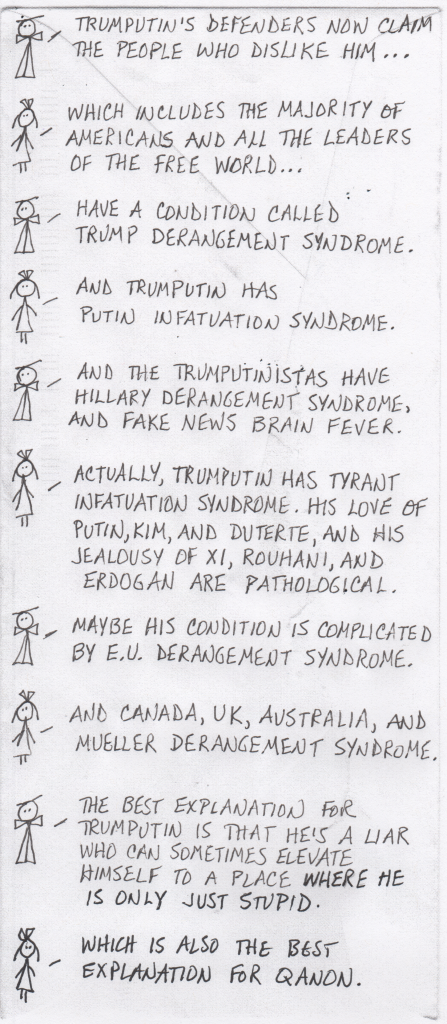 TRUMPUTIN'S DEFENDERS NOW CLAIM
THE PEOPLE WHO DISLIKE HIM...
WHICH INCLUDES THE MAJORITY OF
AMERICANS AND ALL THE LEADERS
OF THE FREE WORLD...
HAVE A CONDITION CALLED
TRUMP DERANGEMENT SYNDROME.
AND TRUMPUTIN HAS
PUTIN INFATUATION SYNDROME.
AND THE TRUMPUTINISTAS HAVE
HILLARY DERANGEMENT SYNDROME,
AND FAKE NEWS BRAIN FEVER.
ACTUALLY, TRUMPUTIN HAS TYRANT
INFATUATION SYNDROME. HIS LOVE OF
PUTIN, KIM, AND DUTERTE, AND HIS
JEALOUSY OF XI, ROUHANI, AND
ERDOGAN ARE PATHOLOGICAL.
MAYBE HIS CONDITION IS COMPLICATED
BY E.U. DERANGEMENT SYNDROME.
AND CANADA, UK, AUSTRALIA, AND
MUELLER DERANGEMENT SYNDROME.
THE BEST EXPLANATION FOR
TRUMPUTIN IS THAT HE'S A LIAR
WHO CAN SOMETIMES ELEVATE
HIMSELF TO A PLACE WHERE HE
IS ONLY JUST STUPID.
WHICH IS ALSO THE BEST
EXPLANATION FOR QANON.